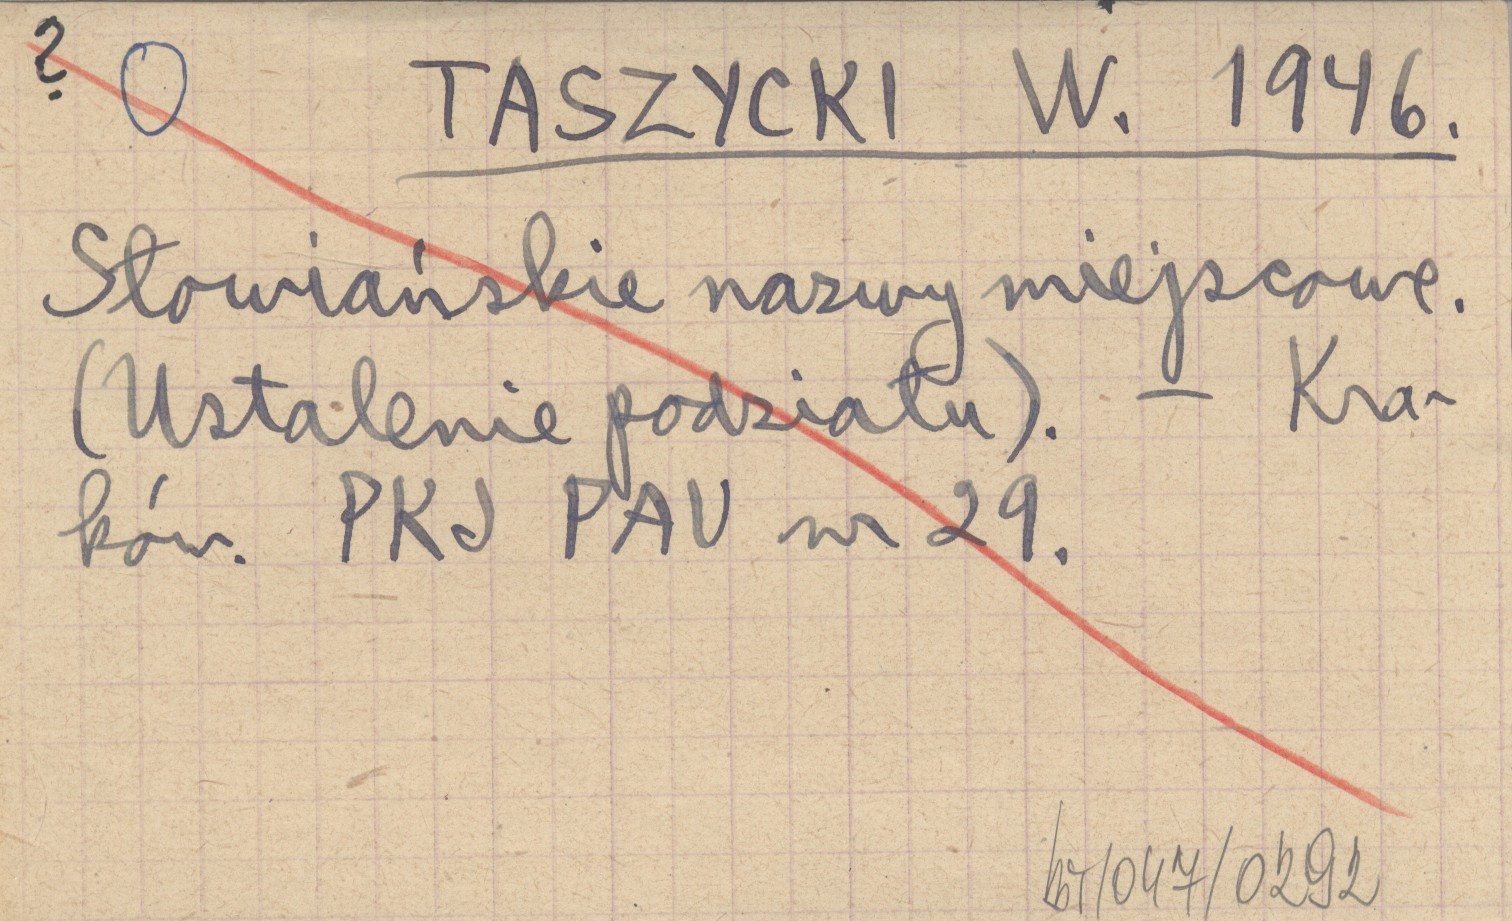 ? O TASZYCKI W. 1946.
Słowiańskie nazwy miejscowe.
(Ustalenie podziału). – Kra-
ków. PKJ PAU nr 29.
/047/0292